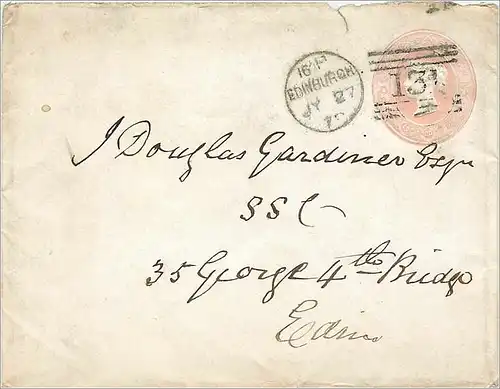 EDINBURGH
JY 27
131
J Douglas Gardiner Esqr
SSC
35 George 4th Bridge
Edin